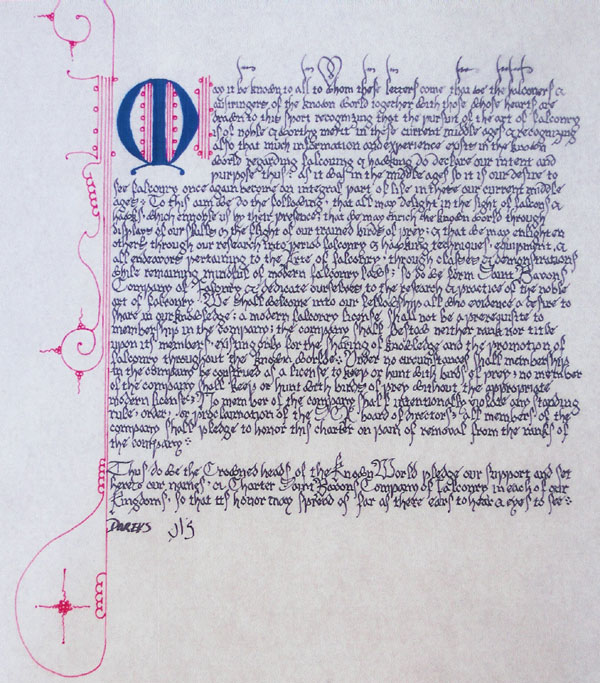 May it be known to all to whom these letters come that we the falconers &
austringers of the known world together with those whose hearts are
drawn to this sport recognizing that the pursuit of the art of falconry
is of noble & worthy merit in these current middle ages & recognizing
also that much information and experience exists in the known
world regarding falconing & hawking do declare our intent and
purpose thus: as it was in the middle ages so it is our desire to
see falconry once again become an integral part of life in these our current middle
ages. To this aim we do the following: that all may delight in the sight of falcons &
hawks which ennoble us by their presence; that we may enrich the known world through
displays of our skills & the flight of our trained birds of prey; & that we may enlighten
others through our research into period falconry & hawking techniques, equipment, &
all endeavors pertaining to the Arte of falconry; through classes & demonstrations
while remaining mindful of modern falconry laws; so do we form Saint Bavons
Company of Falconry & dedicate ourselves to the research & practice of the noble
art of falconry. We shall welcome into our fellowship all who evidence a desire to
share in our knowledge; a modern falconry license shall not be a prerequisite to
membership in the company; the company shall bestow neither rank nor title
upon its members, existing only for the sharing of knowledge and the promotion of
falconry throughout the known worlde. Under no circumstances shall membership
in the company be construed as a license to keep or hunt with birds of prey; no member
of the company shall keep or hunt with birds of prey without the appropriate
modern license. No member of the company shall intentionally violate any standing
rule, order, or proclamation of the SCA board of directors. All members of the
company shall pledge to honor this charter on pain of removal from the ranks of
the company.
Thus do we the Crowned heads of the Known World pledge our support and set
hereto our names & Charter Saint Bavons Company of Falconry in each of our
Kingdoms, so that its honor may spread as far as there ears to hear & eyes to see.
DAREUS